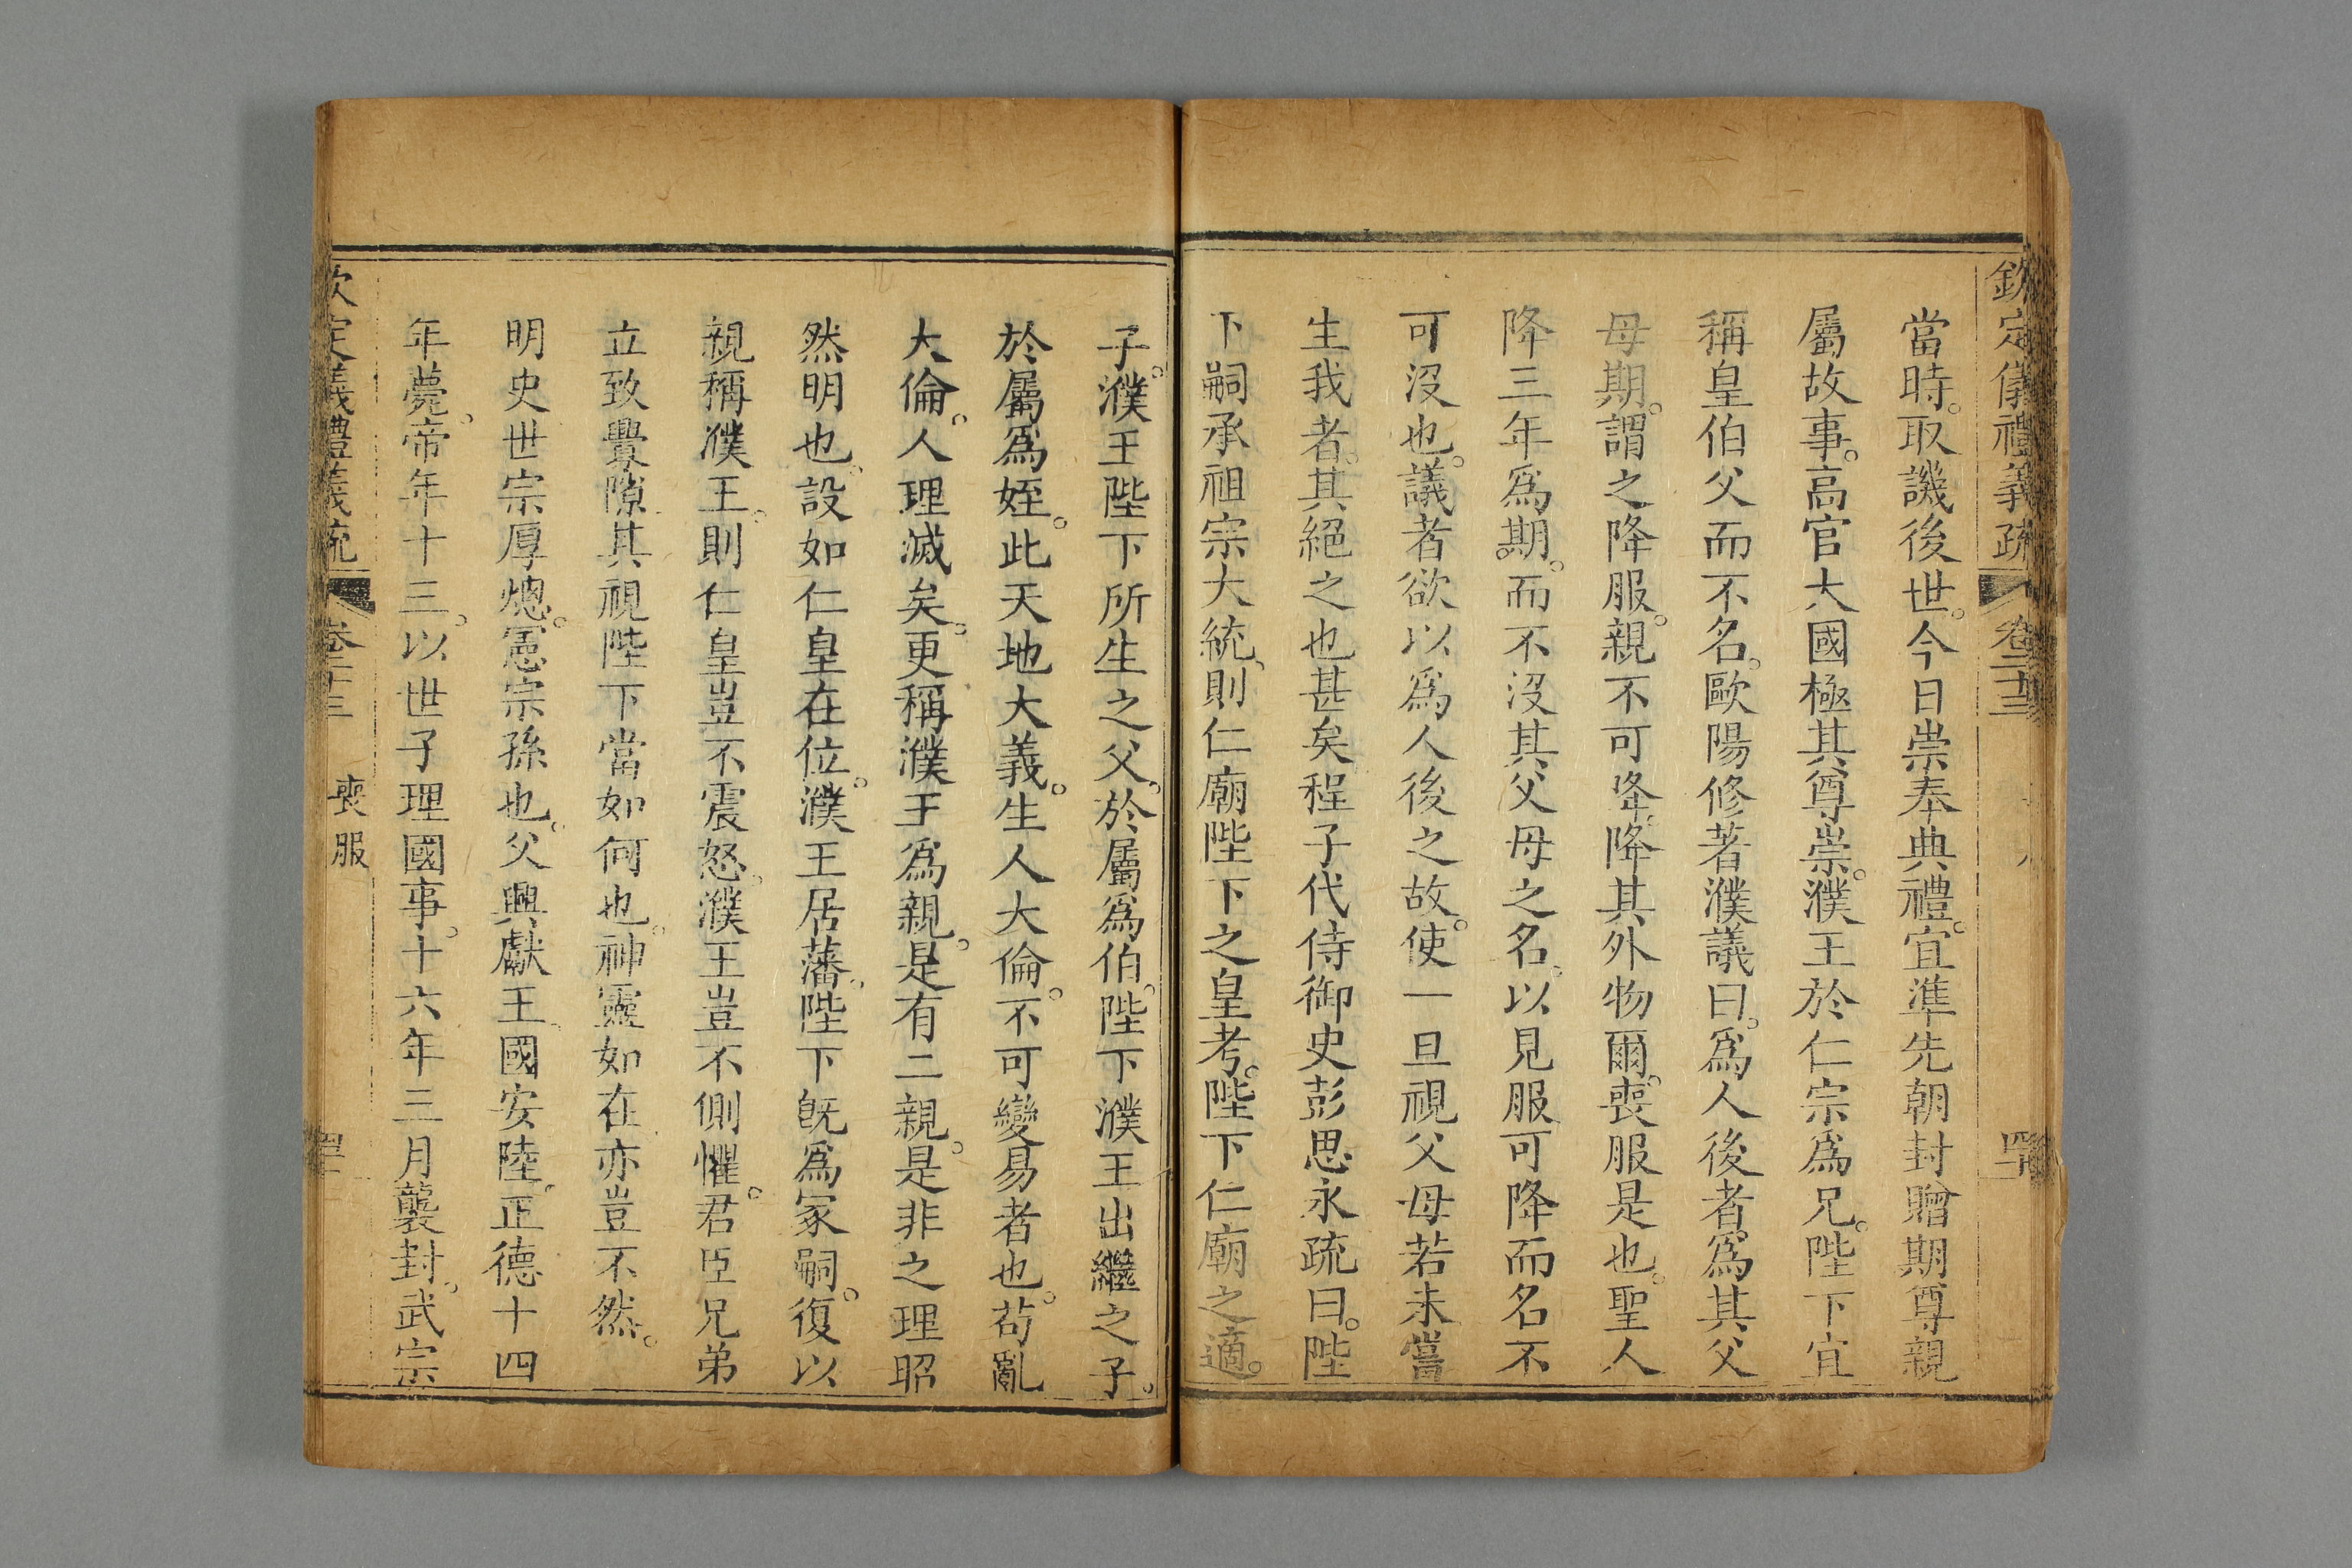 欽定儀禮義疏 卷二十三
當時。取譏後世。今日崇奉典禮。宜準先朝封贈期尊親
屬故事。高官大國極其尊崇。濮王於仁宗爲兄。陛下宜
稱皇伯父而不名。歐陽修著濮議曰。爲人後者。爲其父
母期。謂之降服。親不可降。降其外物爾。喪服是也。聖人
降三年爲期。而不沒其父母之名。以見服可降而名不
可沒也。議者欲以爲人後之故。使一旦視父母若未嘗
生我者。其絕之也甚矣程子代侍御史彭思永疏曰。陛
下嗣承祖宗大統。則仁廟陛下之皇考。陛下仁廟之適。
子。濮王陛下所生之父。於屬爲伯。陛下濮王出繼之子。
於屬爲姪。此天地大義。生人大倫。不可變易者也。苟亂
大倫。人理滅矣。更稱濮王爲親。是有二親。是非之理昭
然明也。設如仁皇在位。濮王居藩。陛下旣爲冢嗣。復以
親稱濮王。則仁皇豈不震怒。濮王豈不側懼。君臣兄弟
立致釁隙其視陛下當如何也。神靈如在亦豈不然。
明史世宗厚熜。憲宗孫也。父興獻王。國安陸。正德十四
年薨。帝年十三。以世子理國事。十六年三月襲封。武宗
欽定儀禮義疏 卷二十三 喪服